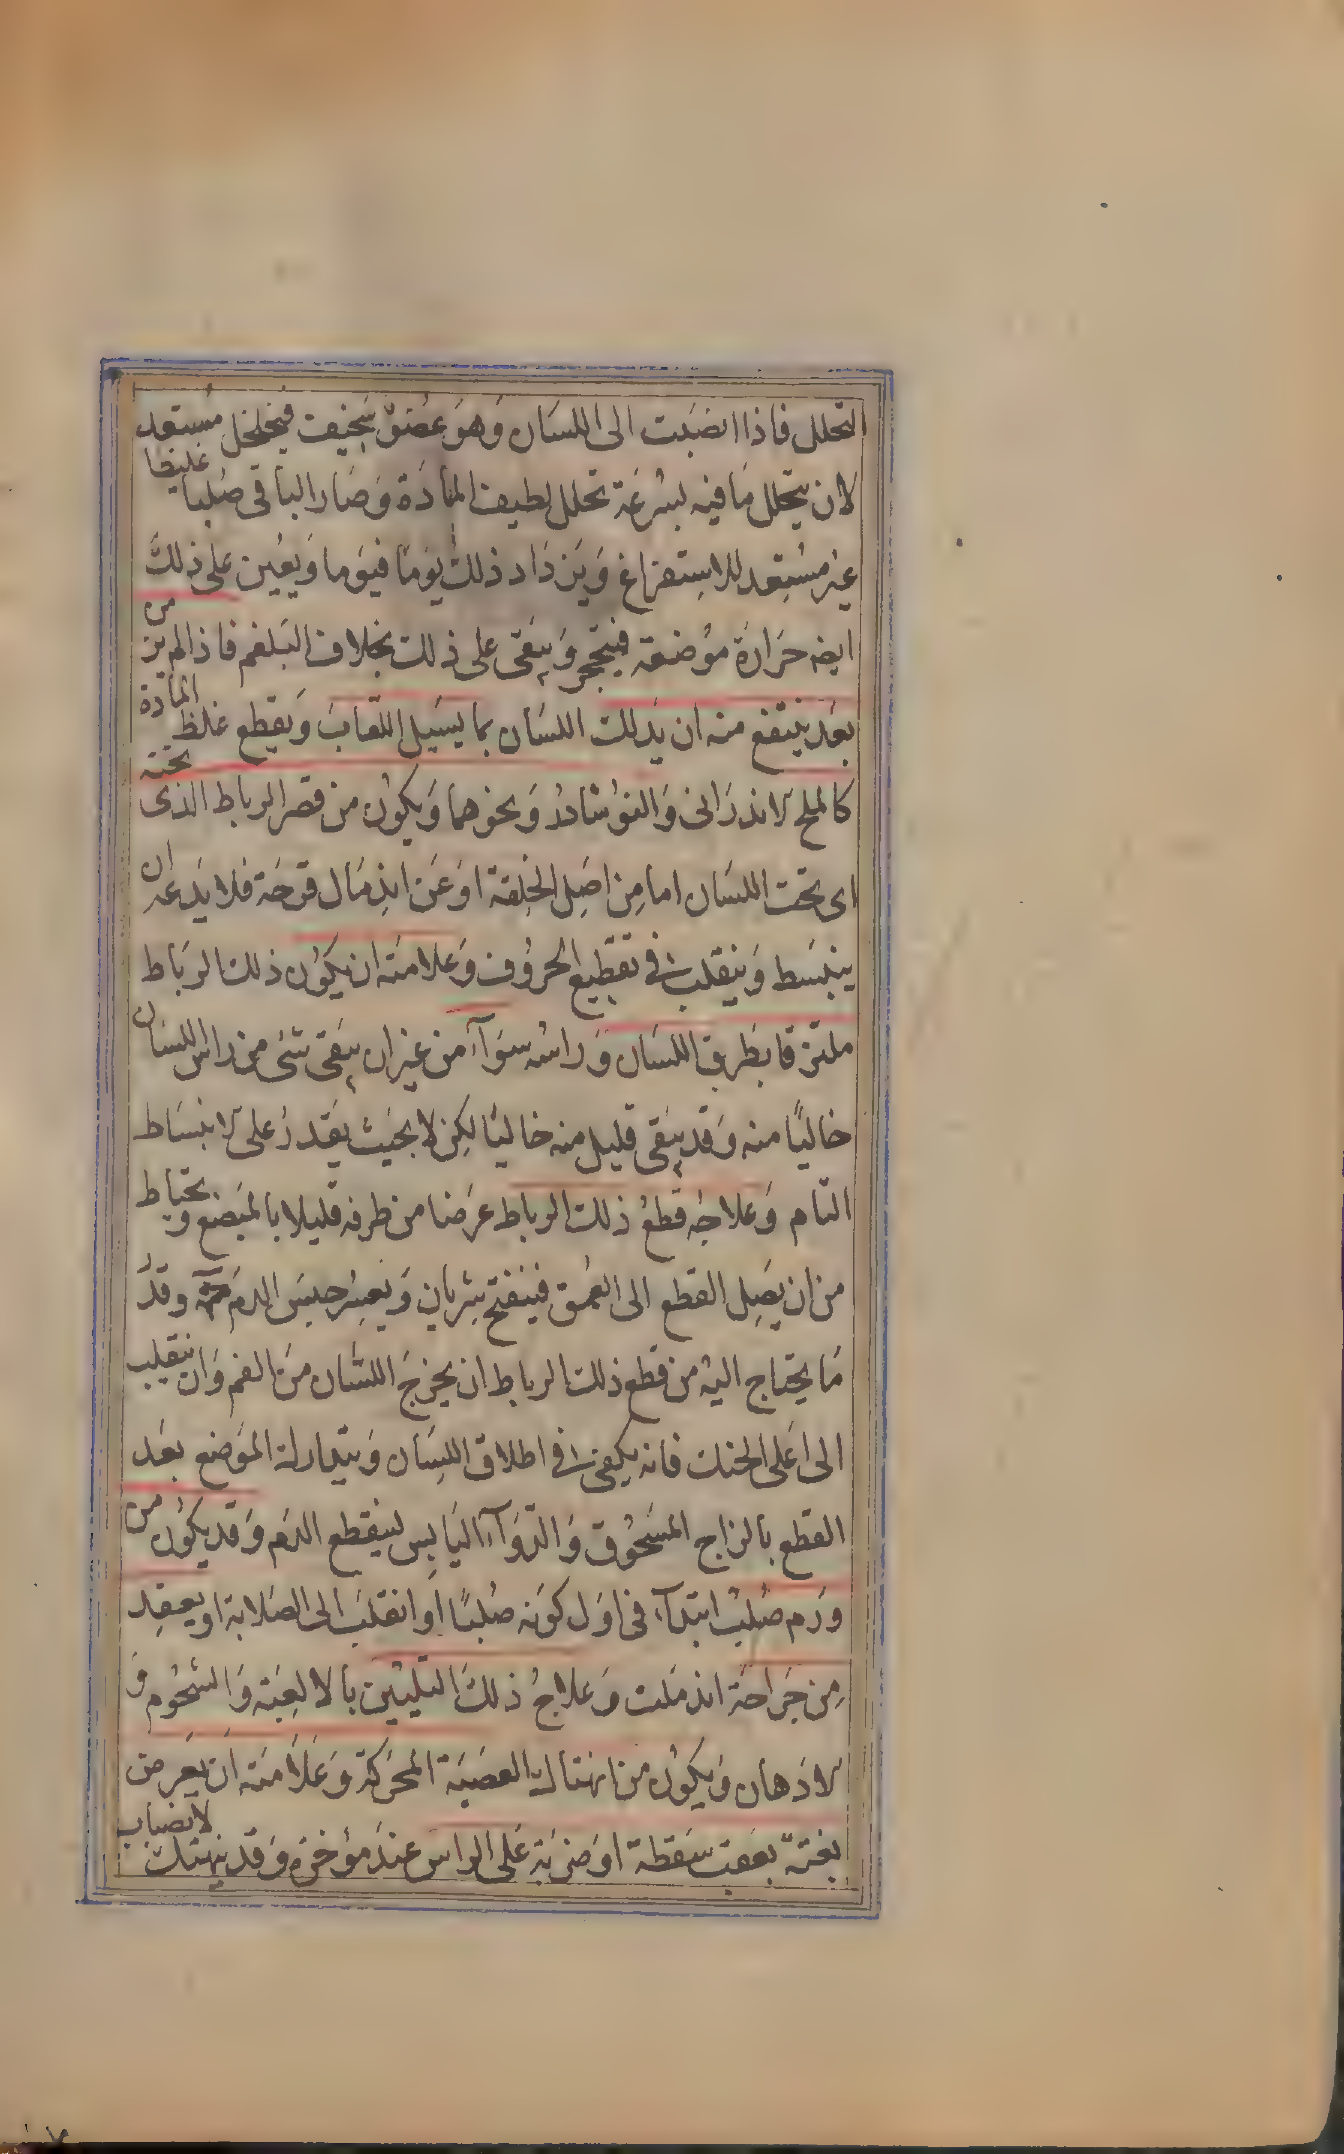 التحلل فاذا انضبت الى اللسان وهو عضو سخيف متخلخل مستعد
لان يتحلل ما فيه بسرعة تحلل لطيف المادة وصار الباقى صلبا غليظا
غير مستعد للاستفراغ ويزداد ذلك يوما فيوما ويعين على ذلك
ايضه حرارة موضعه فيتحجر ويبقى على ذلك بخلاف البلغم فاذا لم يزمن
بعد ينتفع منه ان يدلك اللسان بما يسيل اللعاب ويقطع غلظ المادة
كالملح الاندرانى والنوشادر ونحوهما ويكون من قصر الرباط الذى تحته
اى تحت اللسان اما من اصل الخلقة او عن اندمال قرحة فلا يدعه ان
ينبسط وينقلب فى تقطيع الحروف وعلامته ان يكون ذلك الرباط
ملتزقا بطرف اللسان وراسه سوآء من غير ان يبقى شئ من راس اللسان
خاليًا منه وقد يبقى قليل منه خاليًا لكن لا بحيث يقدر على الانبساط
التام وعلاجه قطع ذلك الرباط عرضا من طرفه قليلا بالمبضع ويحتاط
من ان يصل القطع الى العمق فينفتح شريان ويعسر حبس الدم منه وقدر
ما يحتاج اليه من قطع ذلك الرباط ان يخرج اللسان من الفم وان ينقلب
الى اعلى الحنك فانه يكفى فى اطلاق اللسان ويتدارك الموضع بعد
القطع بالزاج المسحوق والدوآء اليابس لينقطع الدم وقد يكون من
ورم صلب ابتدآء فى اول كونه صلبًا او انقلب الى الصلابة او يعقد
من جراحة اندملت وعلاج ذلك التليين بالالعبة والشحوم و
الادهان ويكون من انهتاك العصبة المحركة وعلامته ان يعرض
بغتةً بعقب سقطة او ضربة على الراس عند مؤخره وقد ينهتك لانصباب